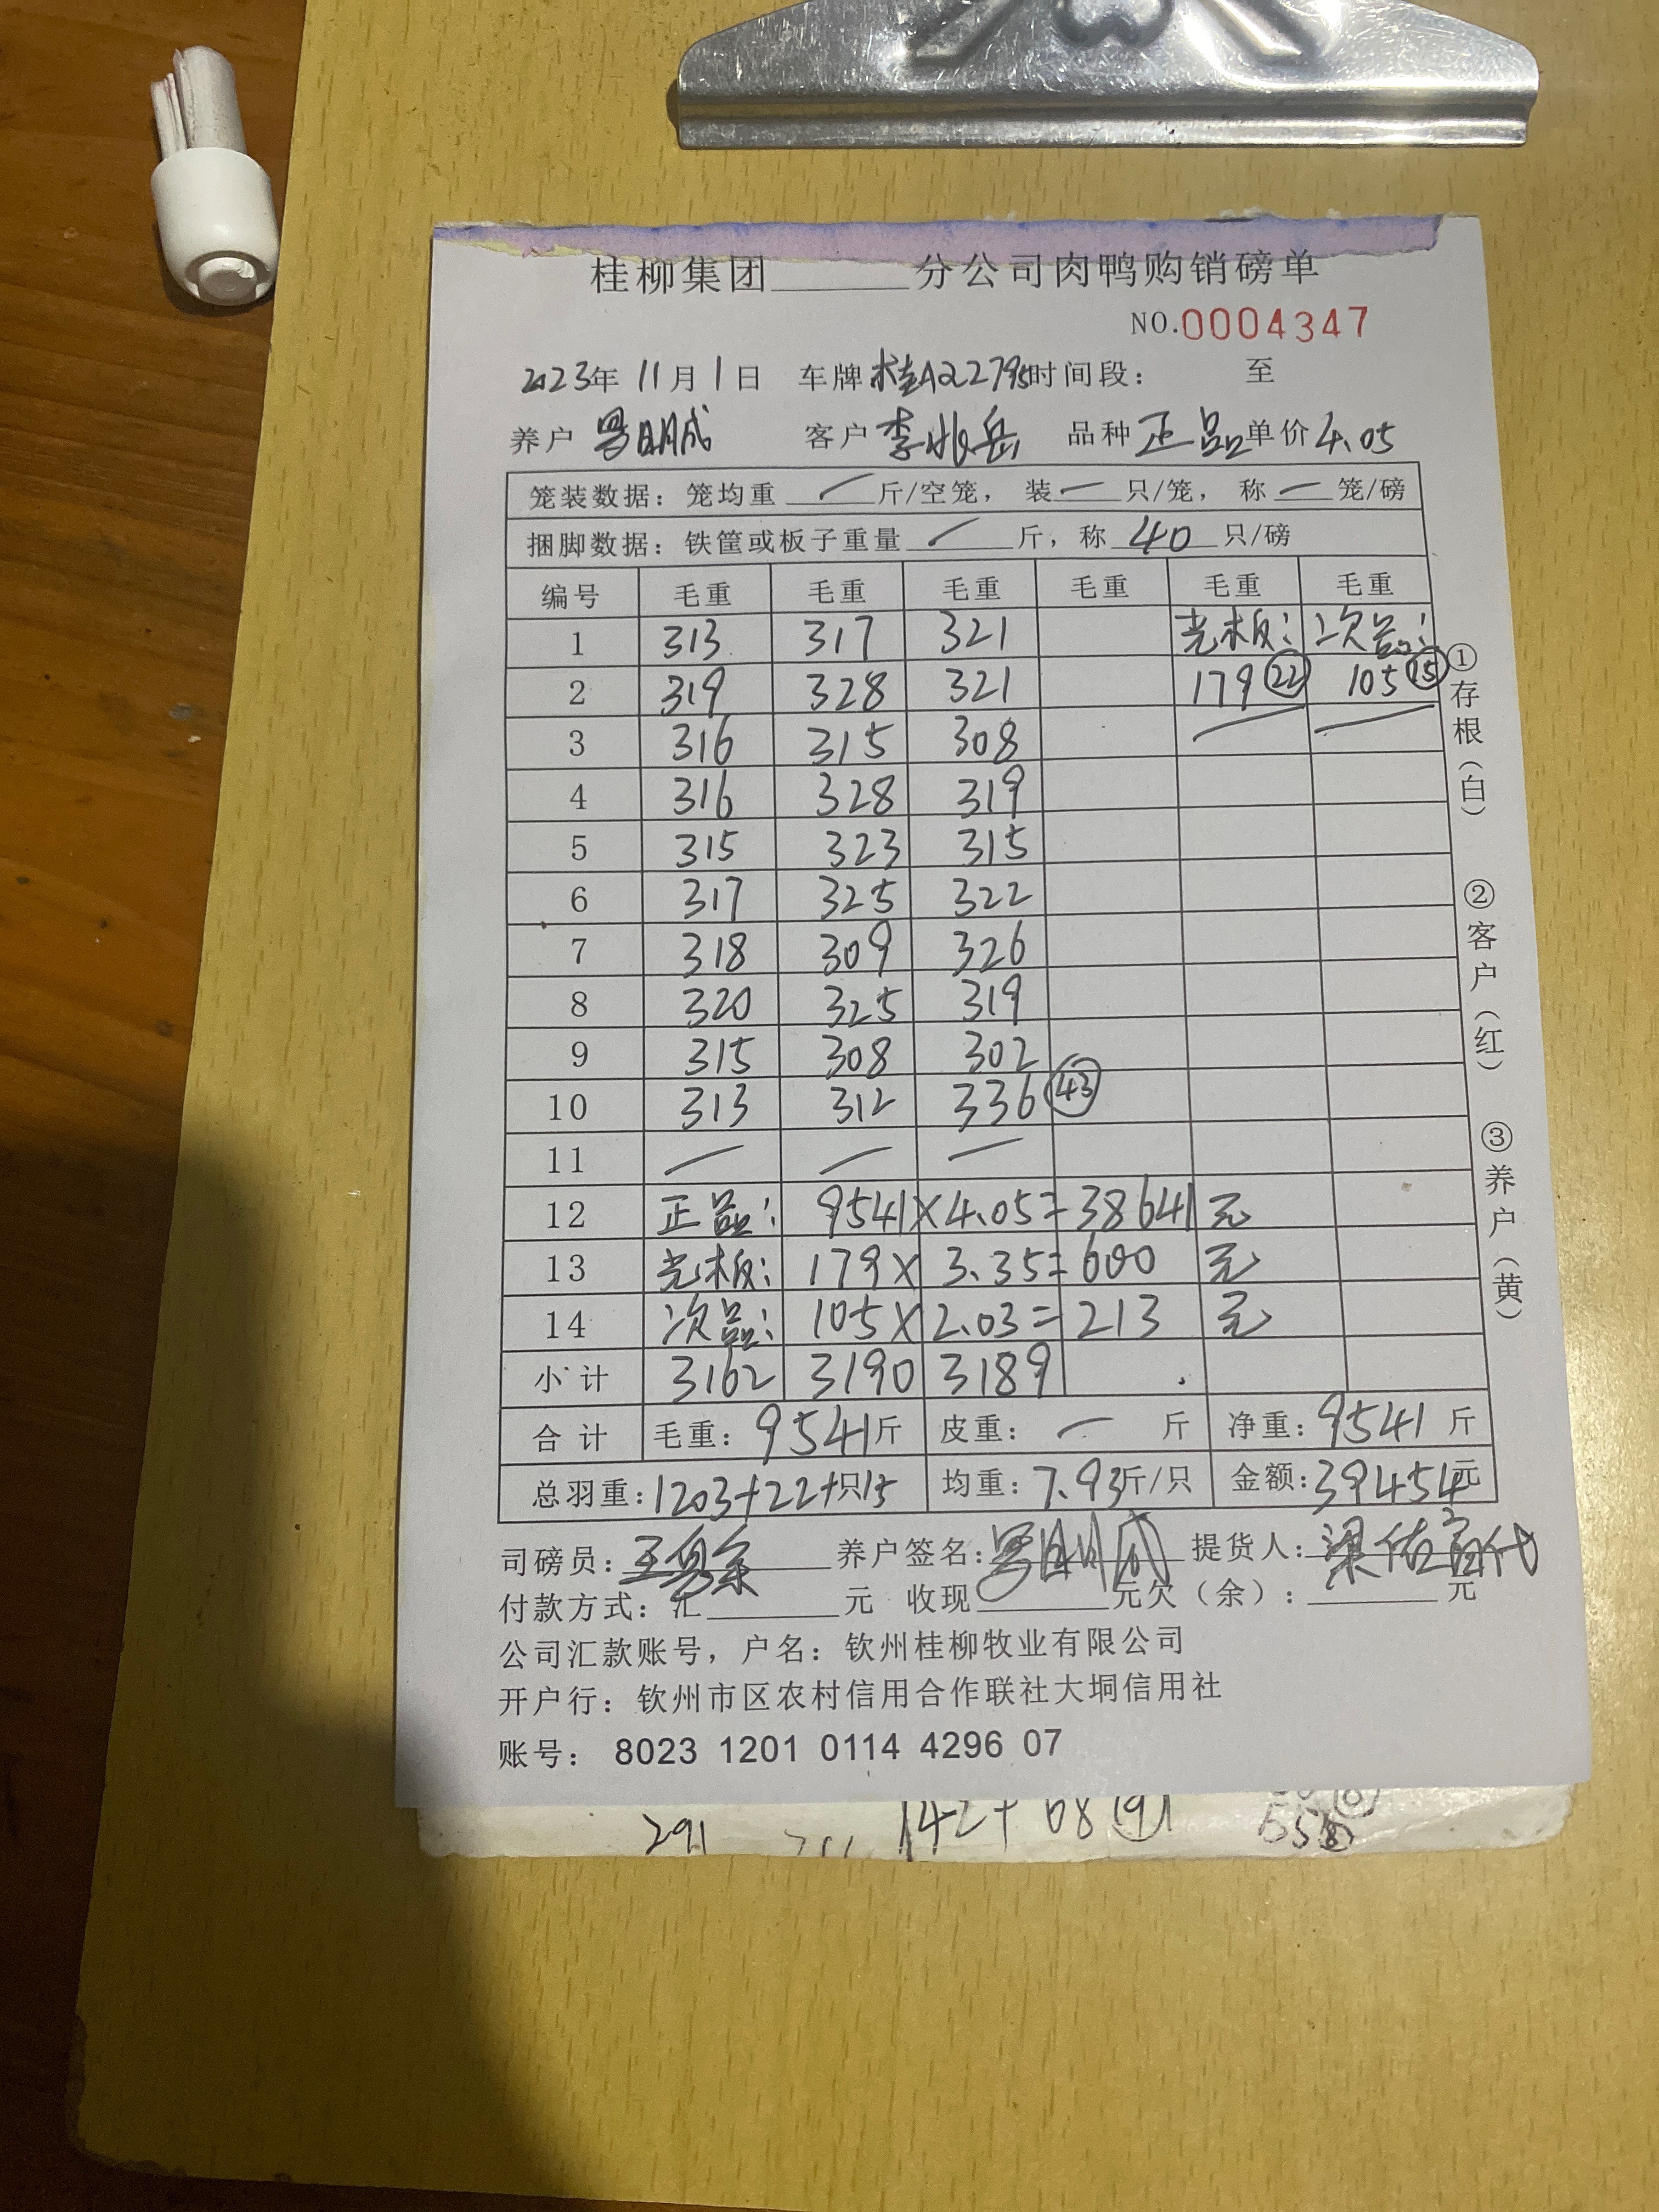 桂柳集团______分公司肉鸭购销磅单
NO.0004347
2023年 11月1日 车牌 桂A22795 时间段： 至
养户 罗明成 客户 李兆岳 品种 正品 单价 4.05
笼装数据：笼均重 / 斤/空笼，装 一 只/笼，称 一 笼/磅
捆脚数据：铁筐或板子重量 / 斤，称 40 只/磅
编号 毛重 毛重 毛重 毛重 毛重 毛重
1 313 317 321 光板： 次品：
2 319 328 321 179 ㉒ 105 ⑮
3 316 315 308 — —
4 316 328 319
5 315 323 315
6 317 325 322
7 318 309 326
8 320 325 319
9 315 308 302
10 313 312 336 ㊸
11 — — —
12 正品： 9541×4.05=38641元
13 光板： 179×3.35=600元
14 次品： 105×2.03=213元
小计 3162 3190 3189
合计 毛重：9541斤 皮重：一 斤 净重：9541斤
总羽重：1203+22+只15 均重：7.93斤/只 金额：39454元
司磅员： 养户签名：罗明成 提货人：梁佑富代
付款方式：汇______元 收现______元欠（余）：______元
公司汇款账号，户名：钦州桂柳牧业有限公司
开户行：钦州市区农村信用合作联社大垌信用社
账号： 8023 1201 0114 4296 07
①存根（白） ②客户（红） ③养户（黄）
291 142+68⑲